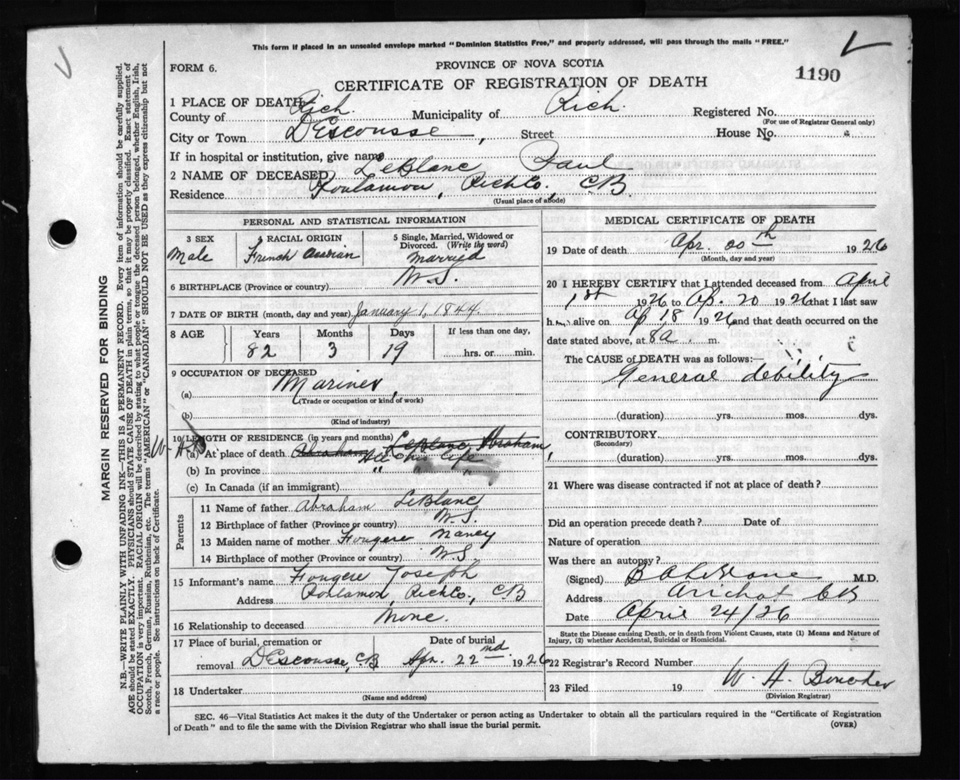 This form if placed in an unsealed envelope marked "Dominion Statistics Free," and properly addressed, will pass through the mails "FREE."
FORM 6.
PROVINCE OF NOVA SCOTIA
CERTIFICATE OF REGISTRATION OF DEATH
1190
1 PLACE OF DEATH
County of Rich. Municipality of Rich. Registered No.
(For use of Registrar General only)
City or Town DEscousse, Street House No.
If in hospital or institution, give name
2 NAME OF DECEASED LeBlanc Paul
Residence Poulamon, RichCo., CB
(Usual place of abode)
PERSONAL AND STATISTICAL INFORMATION
3 SEX 4 RACIAL ORIGIN 5 Single, Married, Widowed or Divorced. (Write the word)
Male French Married
6 BIRTHPLACE (Province or country) N.S.
7 DATE OF BIRTH (month, day and year) January 1, 1844.
8 AGE Years Months Days If less than one day,
82 3 19 hrs. or min.
9 OCCUPATION OF DECEASED
(a) Mariner,
(Trade or occupation or kind of work)
(b)
(Kind of industry)
10 LENGTH OF RESIDENCE (in years and months) LeBlanc Abraham
(a) At place of death. Abraham life
(b) In province " "
(c) In Canada (if an immigrant)
Parents
11 Name of father Abraham LeBlanc
12 Birthplace of father (Province or country) N.S.
13 Maiden name of mother Fougere Nancy
14 Birthplace of mother (Province or country) N.S
15 Informant's name Fougere Joseph
Address Poulamon RichCo., CB
16 Relationship to deceased None.
17 Place of burial, cremation or Date of burial
removal DEscousse, CB Apr. 22nd 1926
18 Undertaker
(Name and address)
MEDICAL CERTIFICATE OF DEATH
19 Date of death Apr. 20th 1926
(Month, day and year)
20 I HEREBY CERTIFY that I attended deceased from April
1st 1926 to Ap. 20 1926 that I last saw
him alive on Ap 18 1926 and that death occurred on
date stated above, at 8a. m.
The CAUSE OF DEATH was as follows:
General debility
(duration) yrs. mos. dys.
CONTRIBUTORY
(Secondary)
(duration) yrs. mos. dys.
21 Where was disease contracted if not at place of death?
Did an operation precede death? Date of
Nature of operation
Was there an autopsy?
(Signed) B A LeBlanc M.D.
Address Arichat CB
Date April 24/26
State the Disease causing Death, or in death from Violent Causes, state (1) Means and Nature of Injury, (2) whether Accidental, Suicidal or Homicidal.
22 Registrar's Record Number
23 Filed 19 W. A. Boucher
(Division Registrar)
SEC. 46—Vital Statistics Act makes it the duty of the Undertaker or person acting as Undertaker to obtain all the particulars required in the "Certificate of Registration
of Death" and to file the same with the Division Registrar who shall issue the burial permit.
(OVER)
MARGIN RESERVED FOR BINDING
N.B.—WRITE PLAINLY WITH UNFADING INK—THIS IS A PERMANENT RECORD. Every item of information should be carefully supplied.
AGE should be stated EXACTLY. PHYSICIANS should STATE CAUSE OF DEATH in plain terms, so that it may be properly classified. Exact statement of
OCCUPATION is very important. RACIAL ORIGIN will be described by stating to what people or tongue the deceased person belonged, whether English, Irish,
Scotch, French, German, Russian, Ruthenian, etc. The terms "AMERICAN" or "CANADIAN" SHOULD NOT BE USED as they express citizenship but not
a race or people. See instructions on back of Certificate.